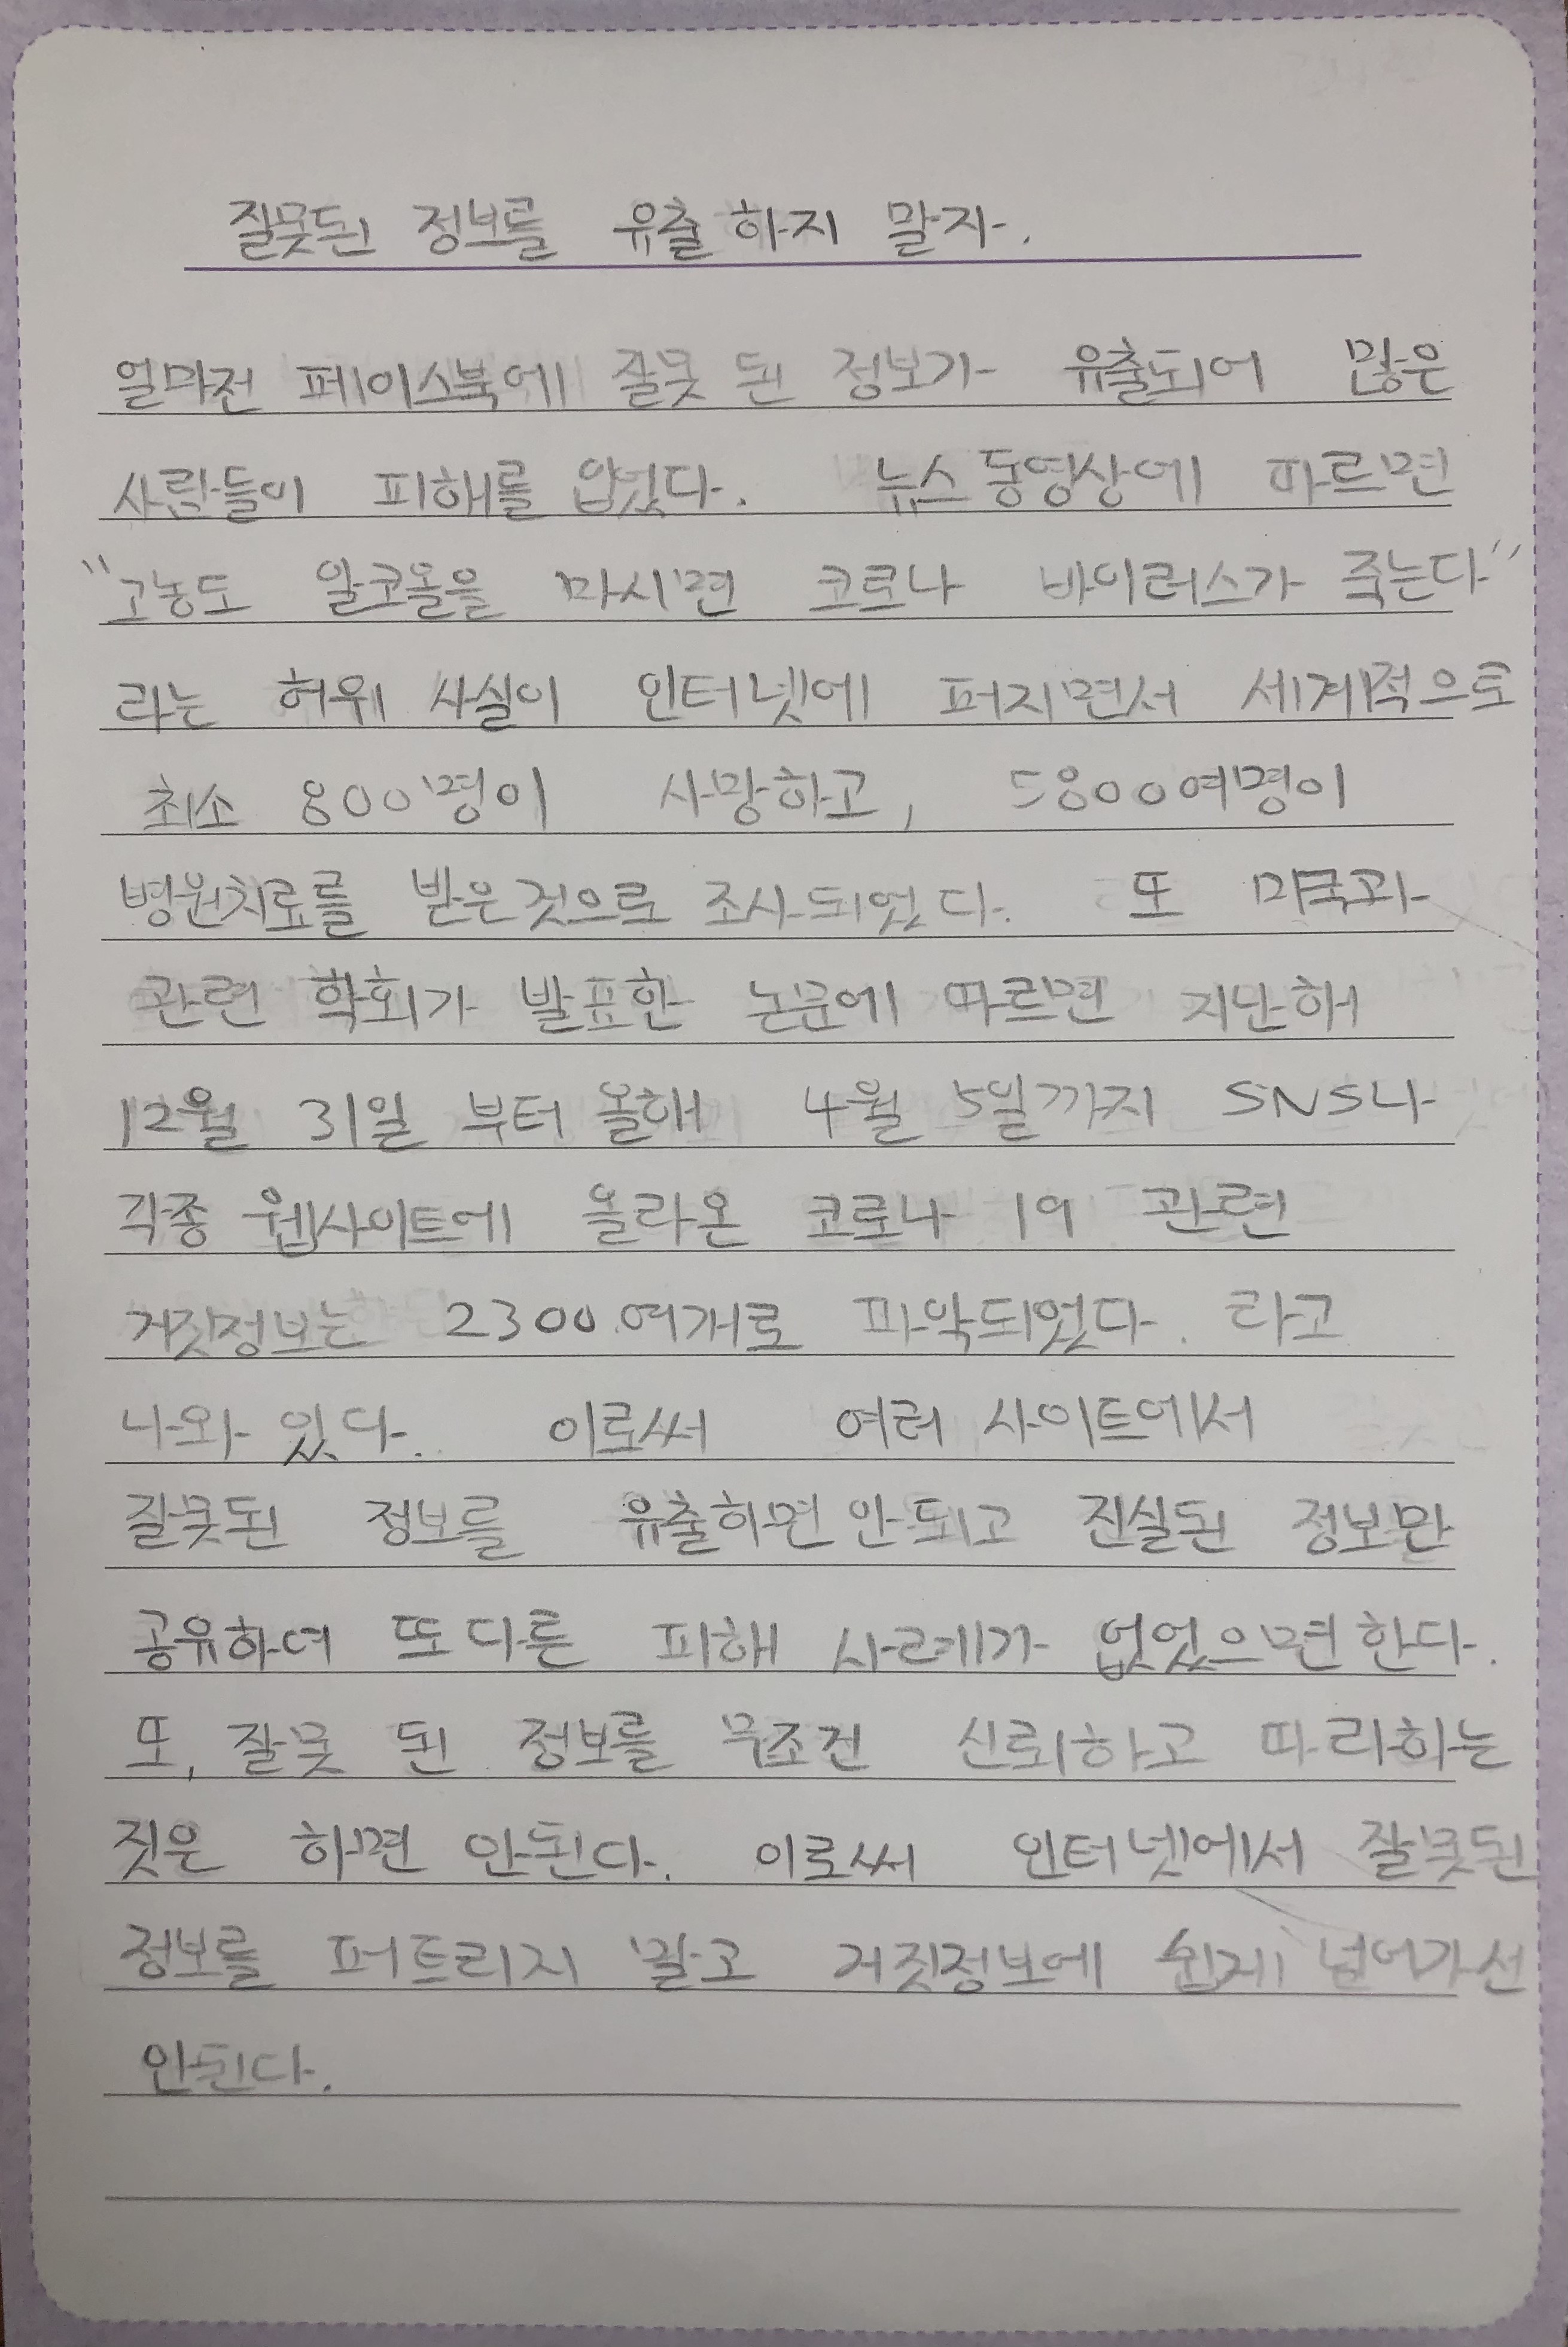 잘못된 정보를 유출 하지 말자.
얼마전 페이스북에 잘못 된 정보가 유출되어 많은
사람들이 피해를 입었다. 뉴스 동영상에 따르면
"고농도 알코올을 마시면 코로나 바이러스가 죽는다"
라는 허위 사실이 인터넷에 퍼지면서 세계적으로
최소 800명이 사망하고, 5800여명이
병원치료를 받은것으로 조사되었다. 또 미국과
관련 학회가 발표한 논문에 따르면 지난해
12월 31일 부터 올해 4월 5일까지 SNS나
각종 웹사이트에 올라온 코로나 19 관련
거짓정보는 2300여개로 파악되었다. 라고
나와 있다. 이로써 여러 사이트에서
잘못된 정보를 유출하면 안되고 진실된 정보만
공유하여 또다른 피해 사례가 없었으면 한다.
또, 잘못 된 정보를 무조건 신뢰하고 따라하는
짓은 하면 안된다. 이로써 인터넷에서 잘못된
정보를 퍼트리지 말고 거짓정보에 쉽게 넘어가선
안된다.